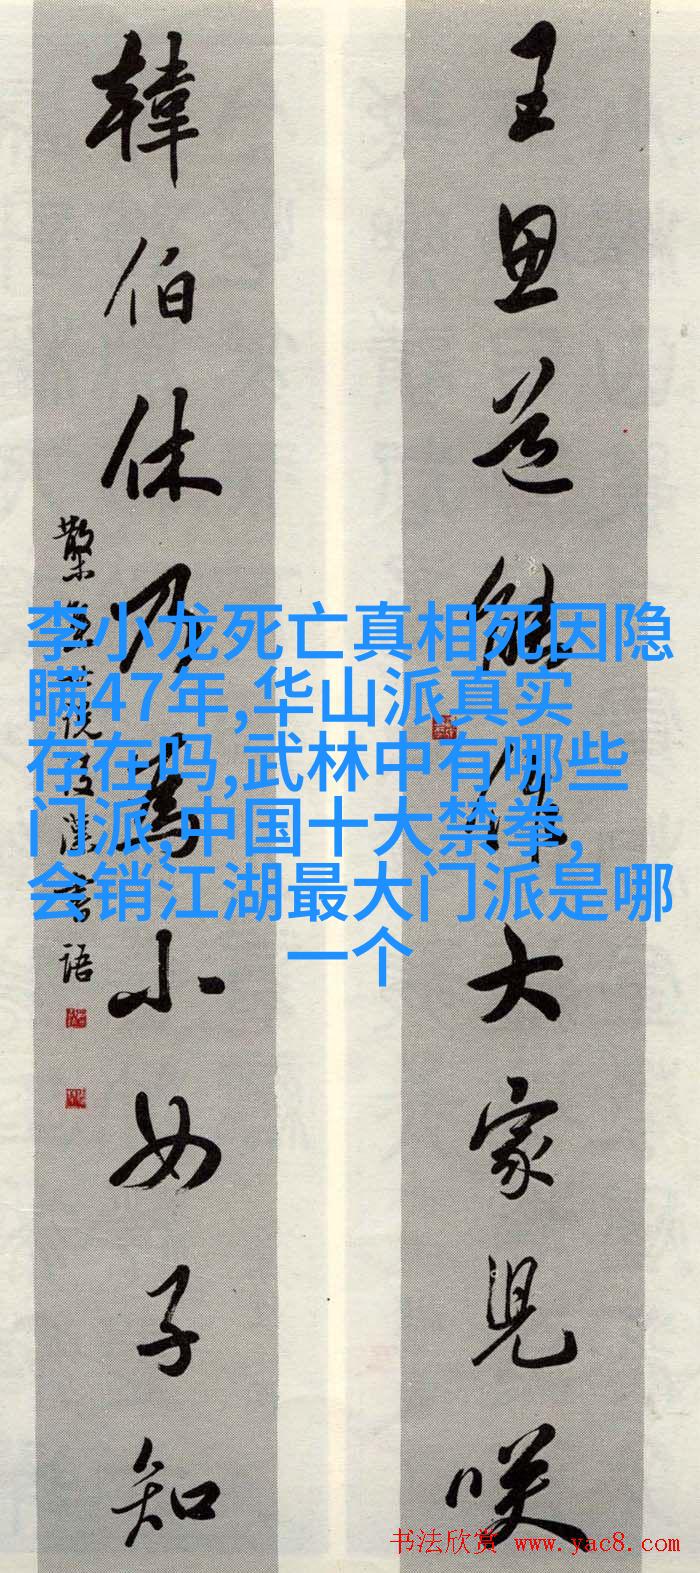 王思道能作大家兒咲
韓伯休乃為小女子知
李小龙死亡真相死因隐
瞒47年,华山派真实
存在吗,武林中有哪些
门派,中国十大禁拳,
会销江湖最大门派是哪
一个
书法欣赏 www.yac8.com